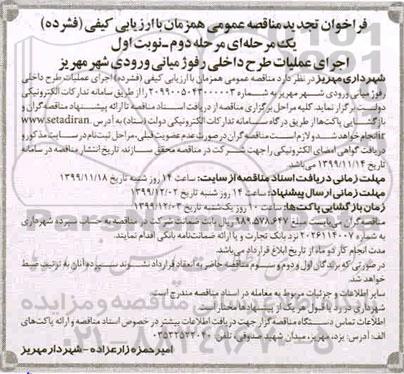 فراخوان تجدید مناقصه عمومی همزمان با ارزیابی کیفی (فشرده)
یک مرحله‌ای مرحله دوم-نوبت اول
اجرای عملیات طرح داخلی رفوژ میانی ورودی شهر مهریز
شهرداری مهریز در نظر دارد مناقصه عمومی همزمان با ارزیابی کیفی (فشرده) اجرای عملیات طرح داخلی
رفوژ میانی ورودی شهر مهریز به شماره ۲۰۹۹۰۰۵۰۴۳۰۰۰۰۰۳ را از طریق سامانه تدارکات الکترونیکی
دولت برگزار نماید. کلیه مراحل برگزاری مناقصه از دریافت اسناد مناقصه تا ارائه پیشنهاد مناقصه‌گران و
بازگشایی پاکت‌ها از طریق درگاه سامانه تدارکات الکترونیکی دولت (ستاد) به آدرس www.setadiran.
ir انجام خواهد شد و لازم است مناقصه‌گران در صورت عدم عضویت قبلی، مراحل ثبت‌نام در سایت مذکور و
دریافت گواهی امضای الکترونیکی را جهت شرکت در مناقصه محقق سازند. تاریخ انتشار مناقصه در سامانه
تاریخ ۱۳۹۹/۱۱/۱۴ می‌باشد.
مهلت زمانی دریافت اسناد مناقصه از سایت: ساعت ۱۴ روز شنبه تاریخ ۱۳۹۹/۱۱/۱۸
مهلت زمانی ارسال پیشنهاد: ساعت ۱۴ روز شنبه تاریخ ۱۳۹۹/۱۲/۰۲
زمان بازگشایی پاکت‌ها: ساعت ۱۰ روز یکشنبه تاریخ ۱۳۹۹/۱۲/۰۳
مناقصه‌گران می‌بایست مبلغ ۹۸۹.۵۷۸.۶۴۷ ریال بابت ضمانت شرکت در مناقصه به حساب سپرده شهرداری
به شماره ۲۰۲۶۱۱۴۰۰۷ نزد بانک تجارت و یا ارائه ضمانت‌نامه بانکی اقدام نمایند.
مدت انجام کار دو ماه از تاریخ ابلاغ قرارداد می‌باشد.
در صورتی که برندگان اول و دوم و سوم مناقصه حاضر به انعقاد قرارداد نشوند سپرده آنان به ترتیب ضبط
خواهد شد.
سایر اطلاعات و جزئیات مربوط به معامله در اسناد مناقصه مندرج است.
شهرداری در رد یا قبول هر یک از پیشنهادها مختار است.
اطلاعات تماس دستگاه مناقصه گزار جهت دریافت اطلاعات بیشتر در خصوص اسناد مناقصه و ارائه پاکت‌های
الف: آدرس: یزد، مهریز، میدان شهید صدوقی، تلفن ۰۳۵۳۲۵۲۲۰۴۰
امیر حمزه زارعزاده - شهردار مهریز